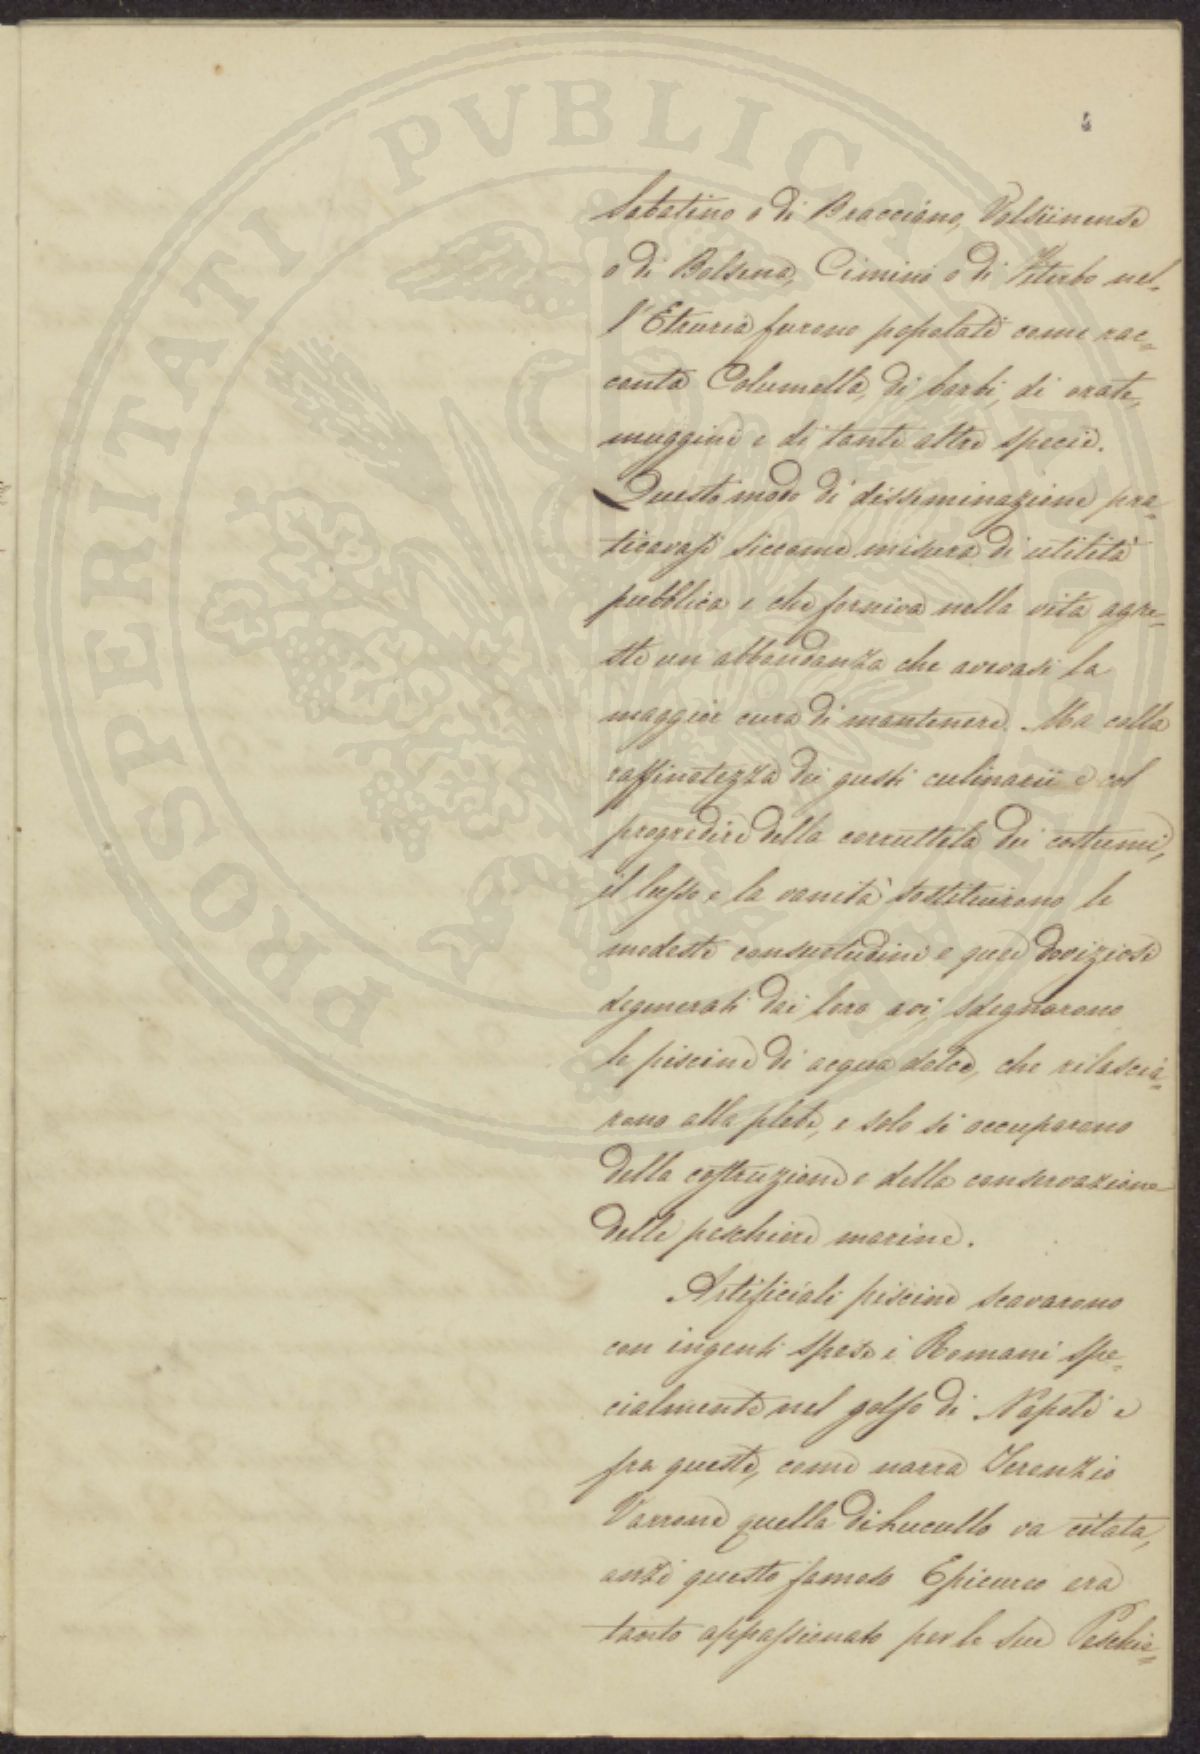 4
Sabatino o di Bracciano, Volsiinense
o di Bolsena, Cimini o di Viterbo nel-
l'Etruria furono popolati come rac=
conta Columella, di barbi, di orate,
muggini e di tante altre specie.
Questo modo di disseminazione pra-
ticavasi siccome misura di utilità
pubblica e che forniva nella vita agre-
ste un abbondanza che avevasi la
maggior cura di mantenere. Ma colla
raffinatezza dei gusti culinarii e col
progredire della corruttela dei costumi,
il lusso e la vanità sostituirono le
modeste consuetudini e quei doviziosi
degenerati dai loro avi, sdegnarono
le piscine di acqua dolce, che rilascia=
rono alla plebe, e solo si occuparono
della costruzione e della conservazione
delle peschiere marine.
Artificiali piscine scavarono
con ingenti spese i Romani spe-
cialmente nel golfo di Napoli e
fra queste, come narra Terenzio
Varrone quella di Lucullo va citata,
anzi questo famoso Epicureo era
tanto appassionato per le sue Peschie=
PROSPERITATI PVBLICAE